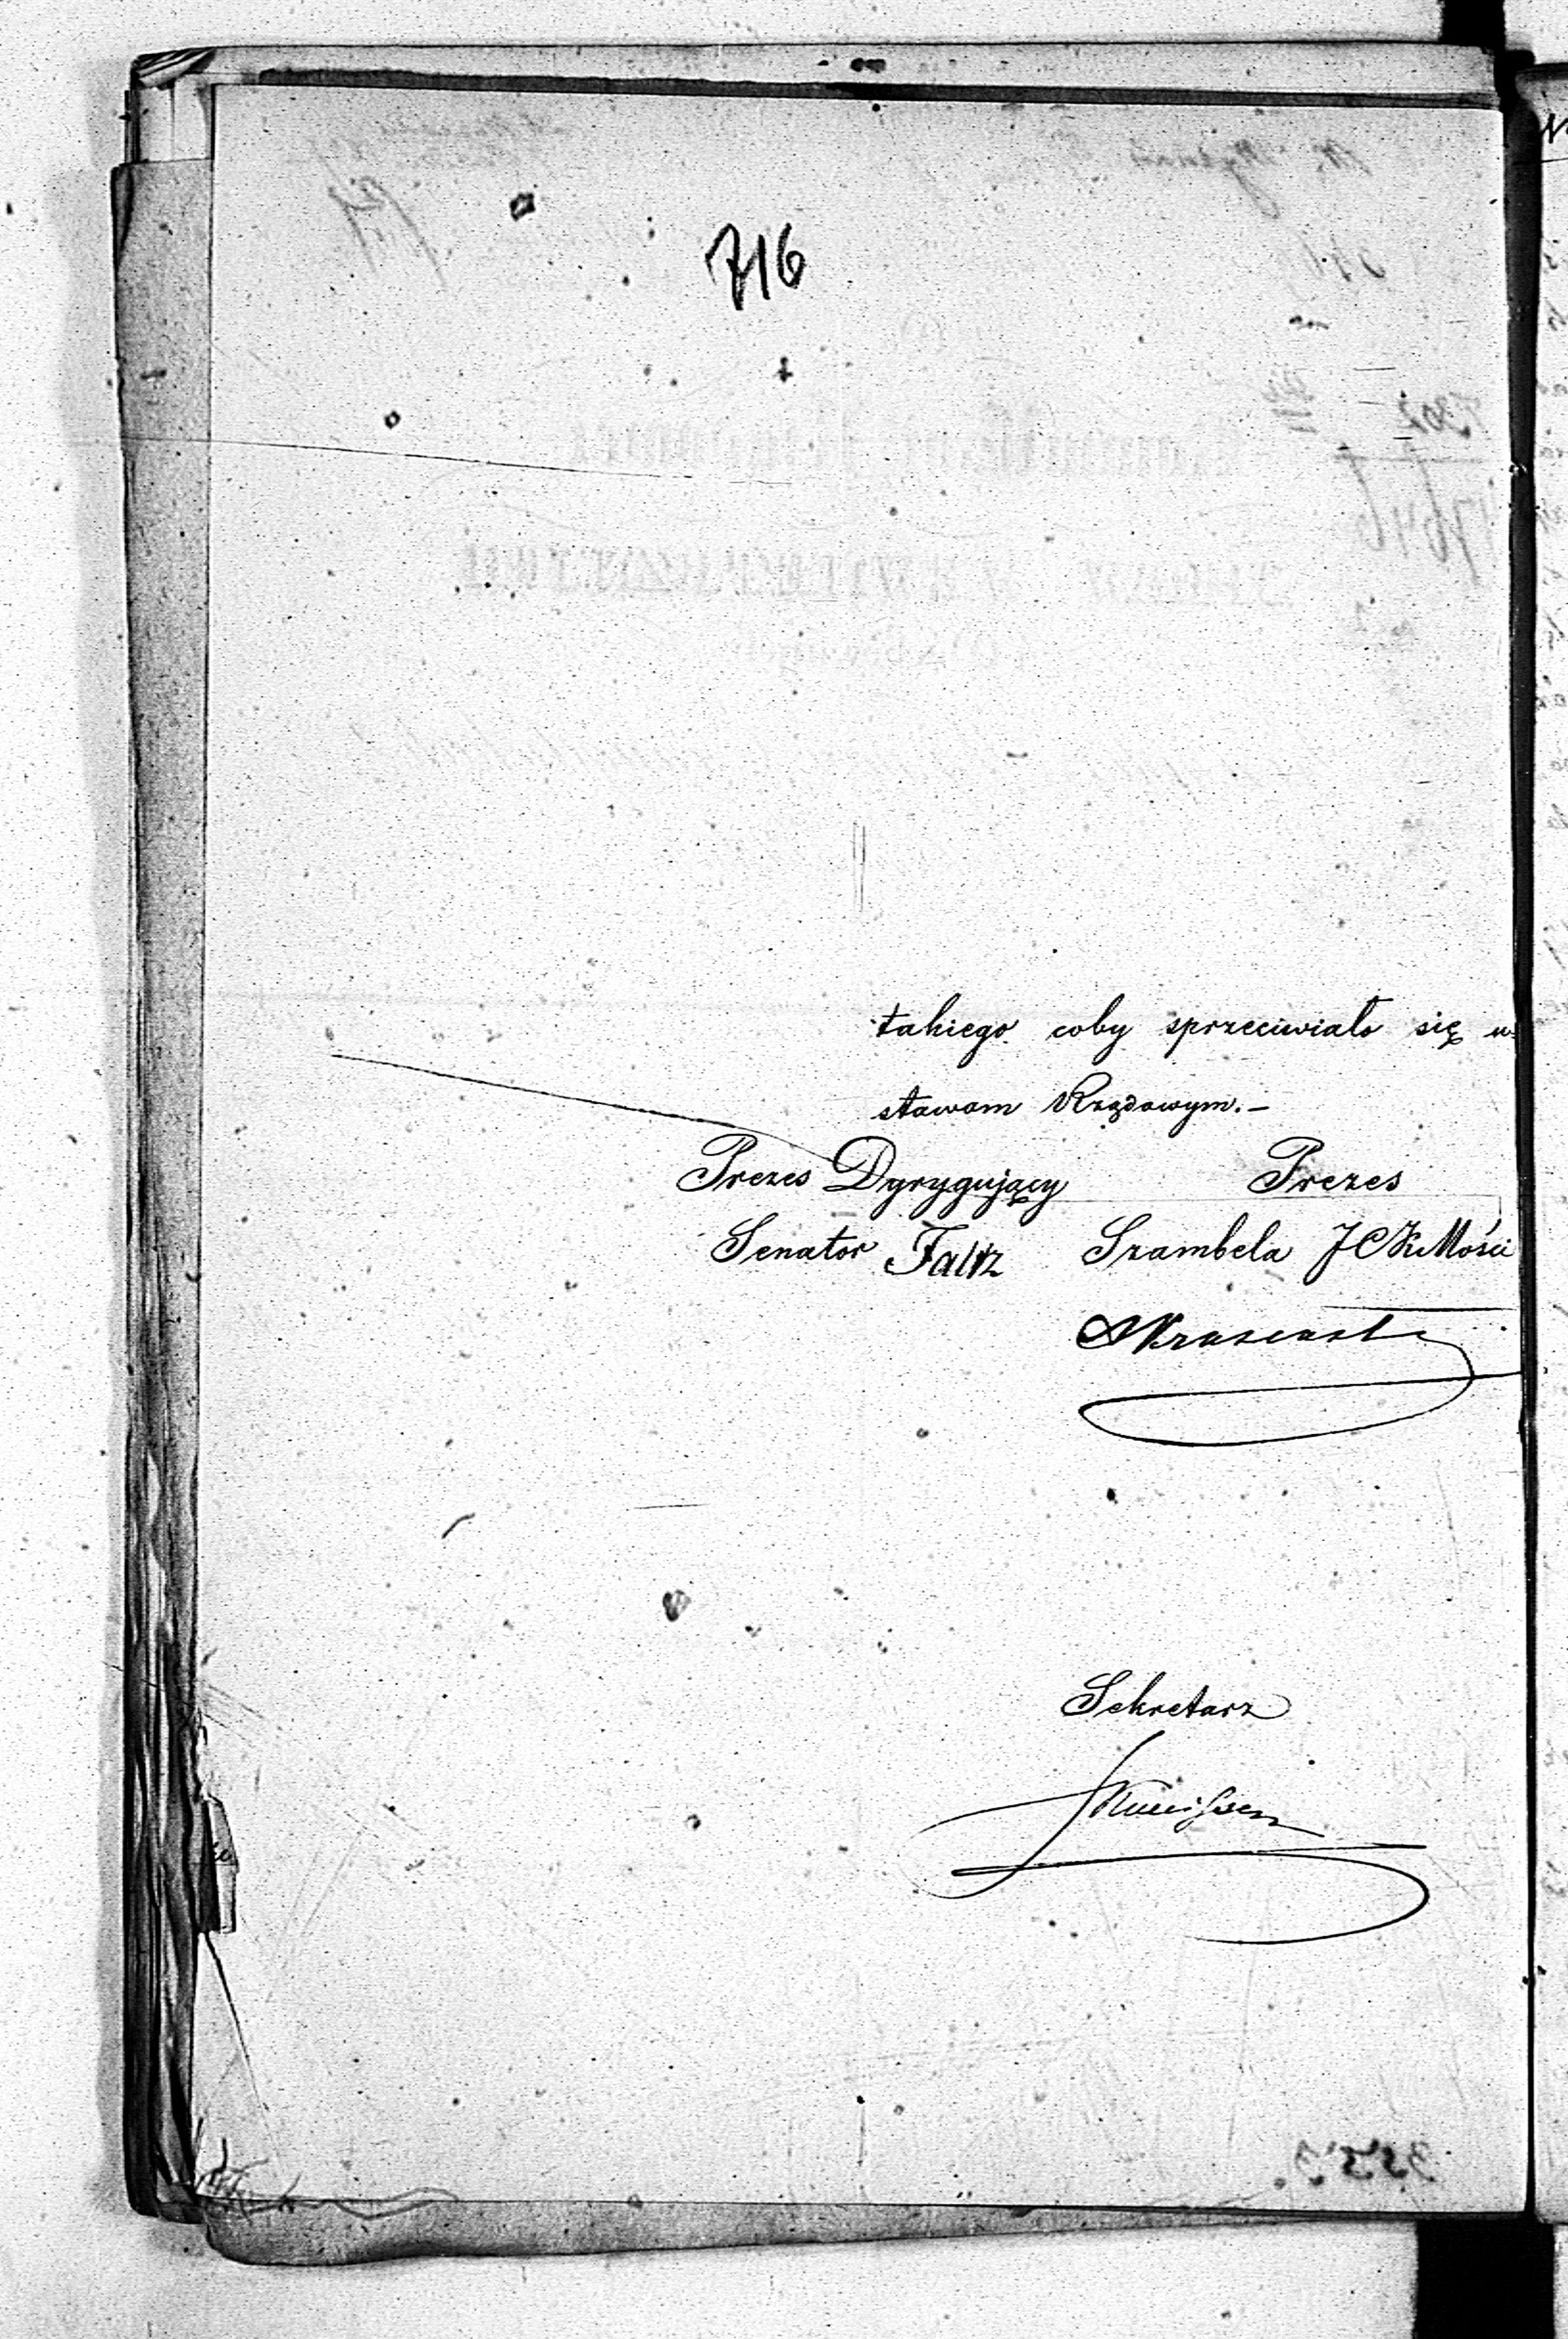 716
takiego coby sprzeciwiało się u-
stawom Rządowym.-
Prezes Dyrygujący Prezes
Senator Faltz Szambela JCKMości
AKrasinski
Sekretarz